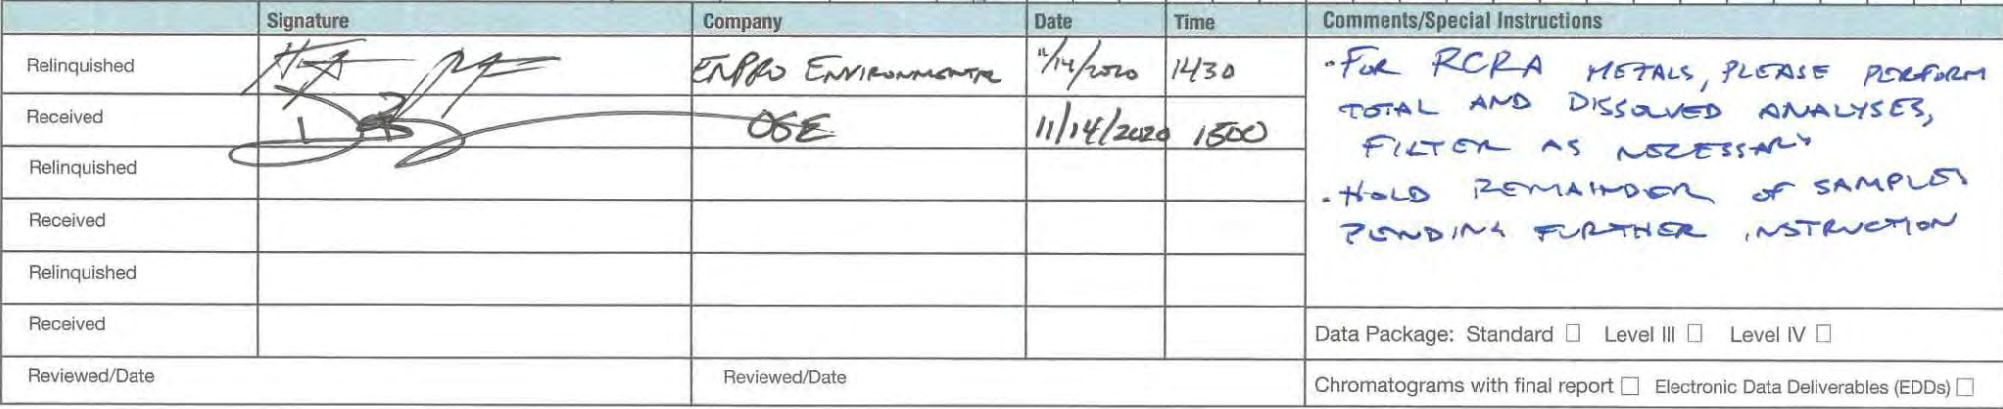 Signature Company Date Time Comments/Special Instructions
Relinquished ENPRO ENVIRONMENTAL 11/14/2020 1430
Received OSE 11/14/2020 1500
Relinquished
Received
Relinquished
Received
Reviewed/Date Reviewed/Date
- FOR RCRA METALS, PLEASE PERFORM
TOTAL AND DISSOLVED ANALYSES,
FILTER AS NECESSARY
- HOLD REMAINDER OF SAMPLES
PENDING FURTHER INSTRUCTION
Data Package: Standard ☐ Level III ☐ Level IV ☐
Chromatograms with final report ☐ Electronic Data Deliverables (EDDs) ☐